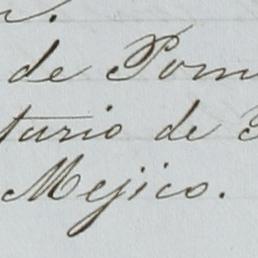 de Pom
tario de
Mejico.